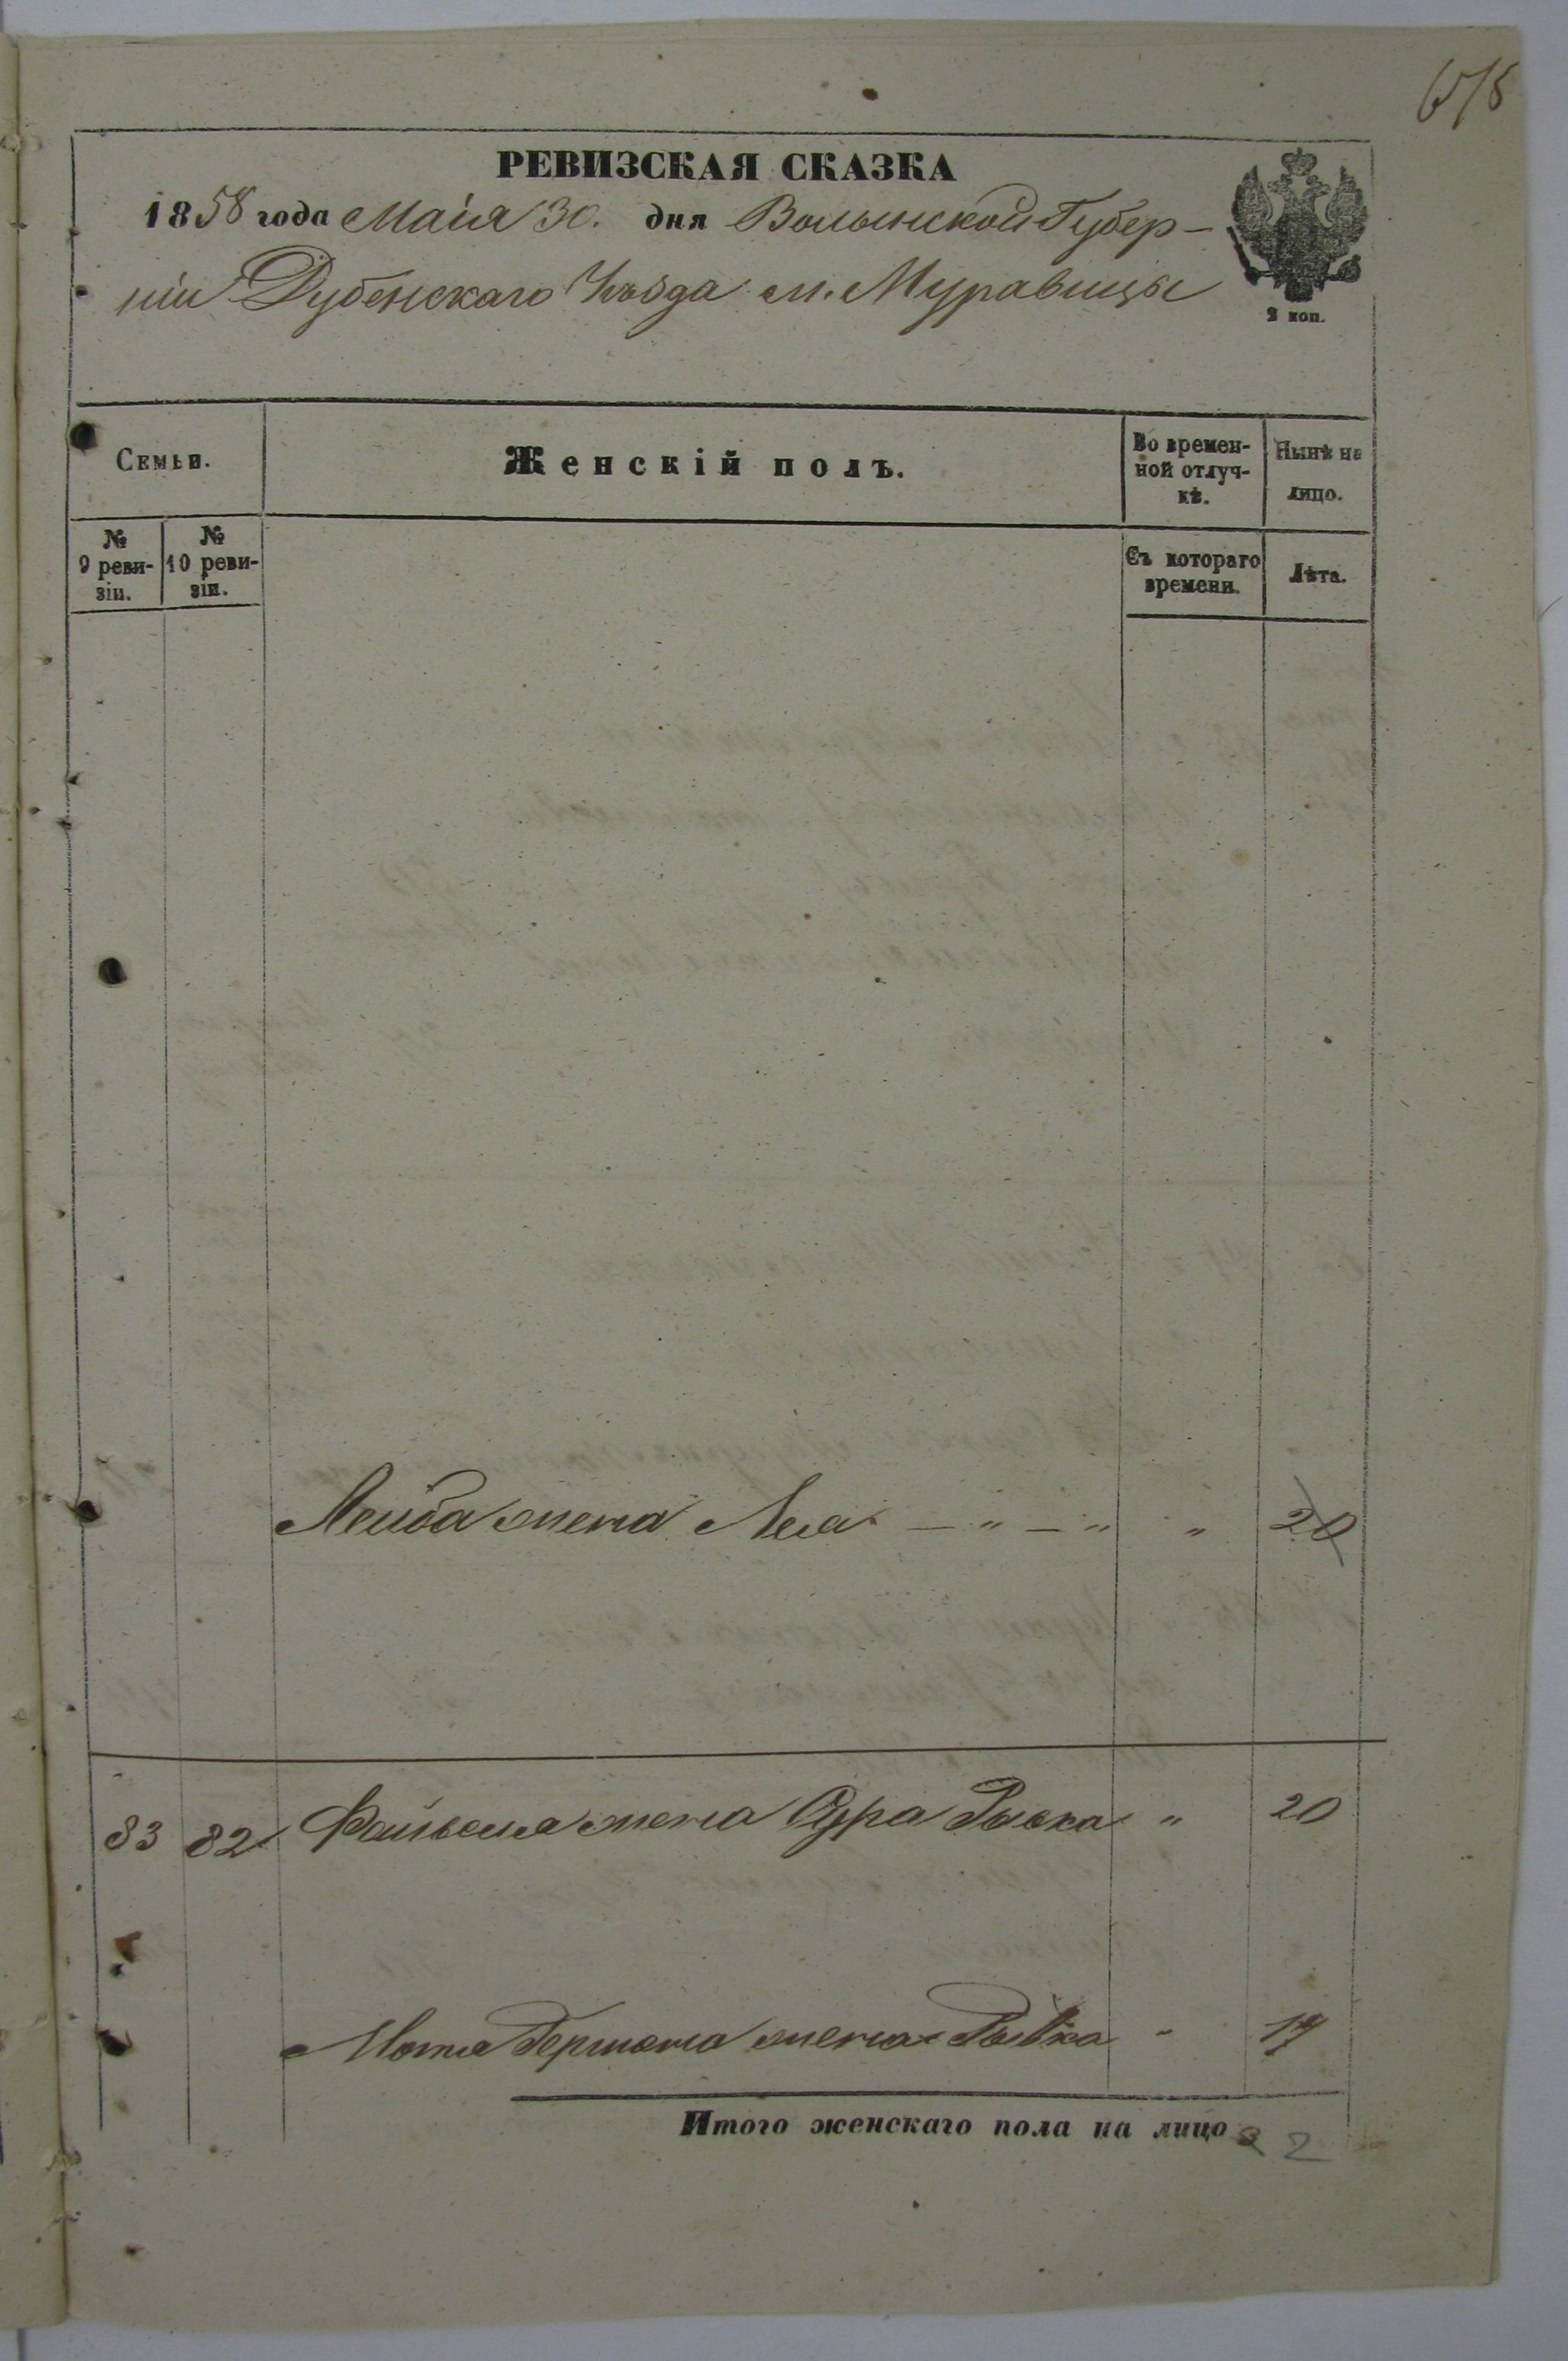 РЕВИЗСКАЯ СКАЗКА
1858 года Маія 30. дня Волынской Губер-
ніи Дубенскаго Уѣзда м. Муравицы
2 коп.
Семьи.
Женскій полъ.
Во времен-
ной отлуч-
кѣ.
Нынѣ на
лицо.
№
9 реви-
зіи.
№
10 реви-
зіи.
Съ котораго
времени.
Лѣта.
Лейба жена Лея — " — " " 20
83 82 Файвеля жена Сура Рывка " 20
Мотя Гершона жена Рывка " 17
Итого женскаго пола на лицо 2